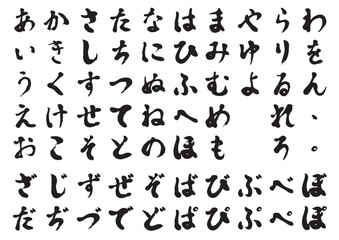 あ か さ た な は ま や ら わ
い き し ち に ひ み ゆ り を
う く す つ ぬ ふ む よ る ん
え け せ て ね へ め れ 、
お こ そ と の ほ も ろ 。
ざ じ ず ぜ ぞ ば び ぶ べ ぼ
だ ぢ づ で ど ぱ ぴ ぷ ぺ ぽ